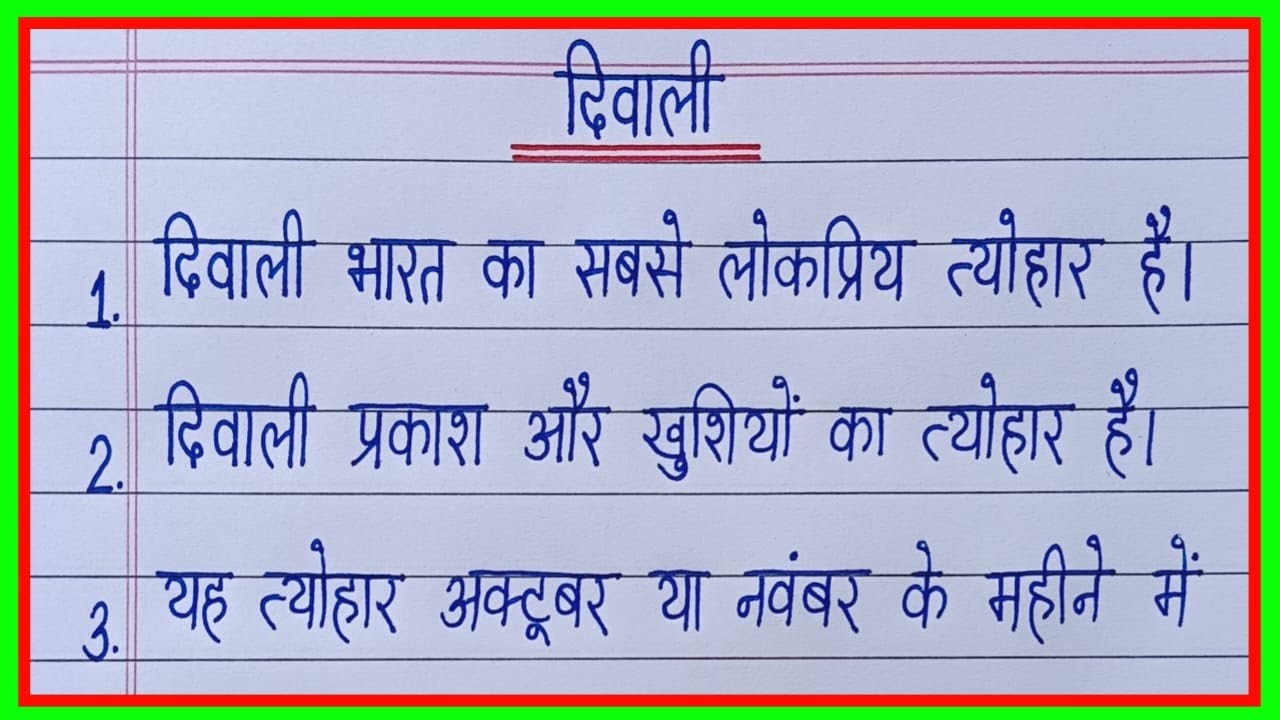 दिवाली
1. दिवाली भारत का सबसे लोकप्रिय त्योहार है।
2. दिवाली प्रकाश और खुशियों का त्योहार है।
3. यह त्योहार अक्टूबर या नवंबर के महीने में